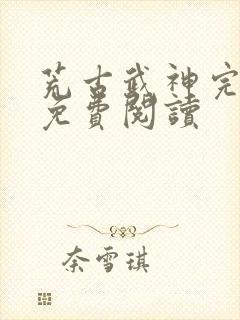 荒古武神完
免費閱讀
奈雪琪